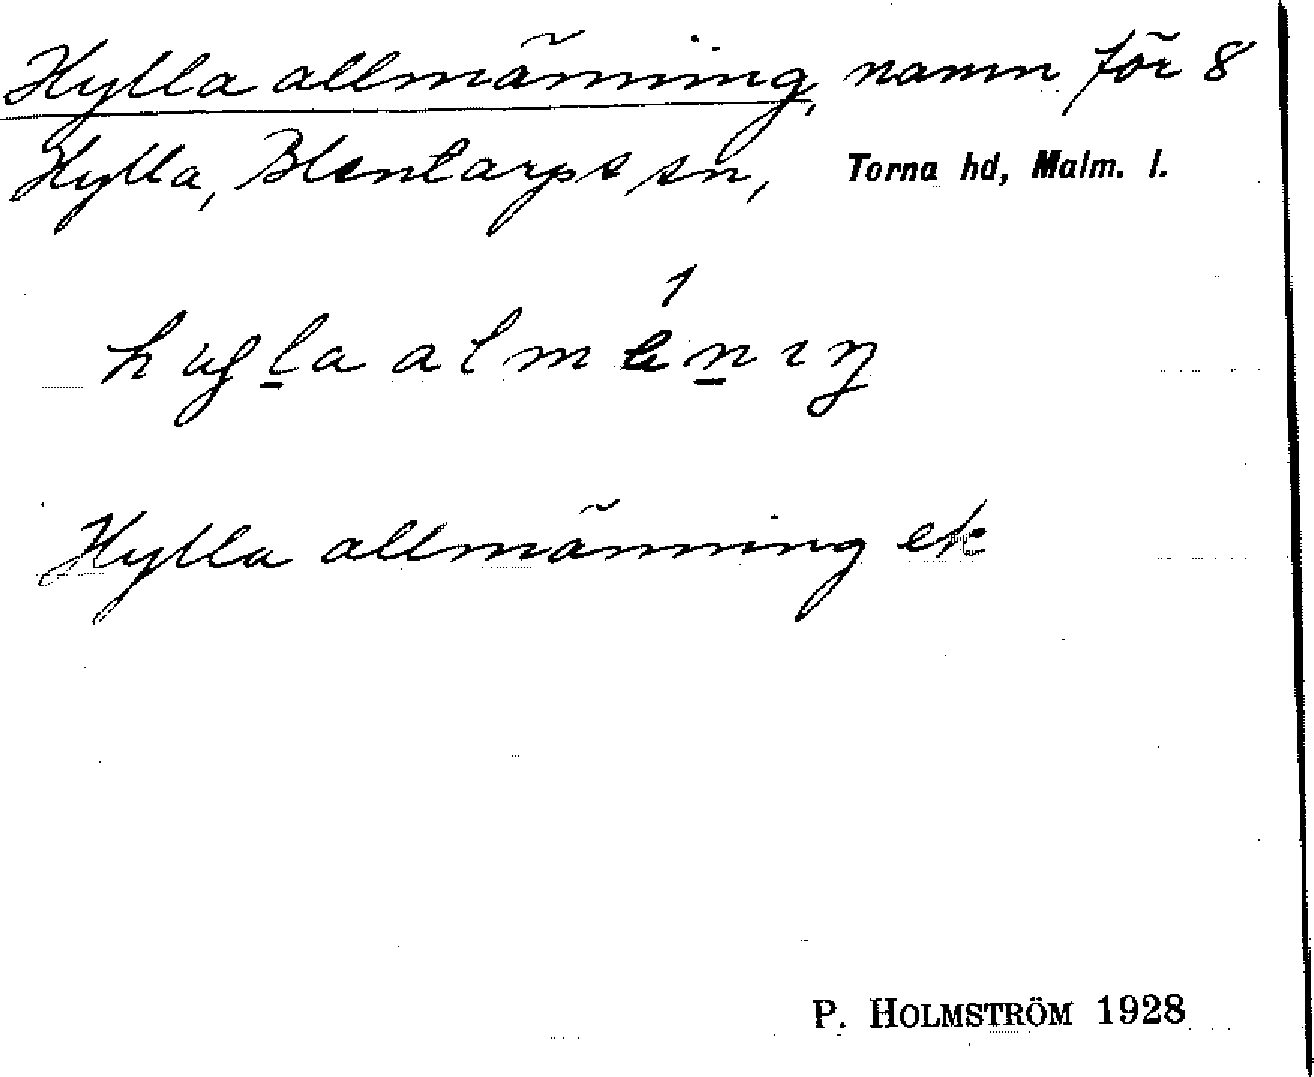 Hylla allmänning, namn för 8
Hylla, Blentarps sn, Torna hd, Malm. l.
Hylla allmänning ek
P. HOLMSTRÖM 1928